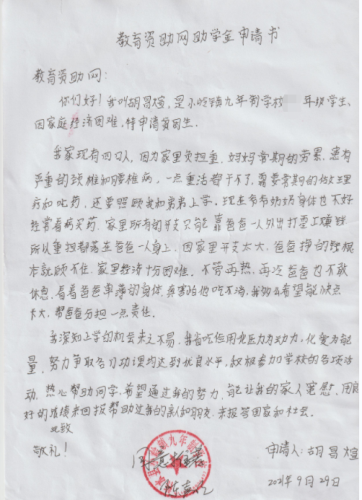 教育资助网助学金申请书
教育资助网：
你们好！我叫胡昌煊，是小坡镇九年制学校 年级学生，
因家庭经济困难，特申请贫困生。
我家现有四口人，因为家里负担重，妈妈常期的劳累，患有
严重的颈椎和腰椎病，一点重活都干不了，需要常期的做理
疗和吃药，还要照顾我和弟弟上学。现在爷爷奶奶身体也不好
经常看病买药，家里所有的开支只能靠爸爸一人外出打零工赚钱
所以重担都落在爸爸一人身上，因家里开支太大，爸爸挣的钱根
本就顾不住，家里经济十分困难。不管再热，再冷爸爸也不敢
休息，看着爸爸单薄的身体，我害怕他吃不消，我多么希望能快点
长大，帮爸爸分担一点责任。
我深知上学的机会来之不易，我会吃住用处压力为动力，化爱为能
量，努力争取各门功课均达到优良水平。积极参加学校的各项活
动，热心帮助同学，希望通过我的努力，能让我的家人宽慰，用良
好的成绩来回报帮助过我的亲人和朋友，来报答国家和社会。
此致
敬礼！
申请人：胡昌煊
2021年9月29日